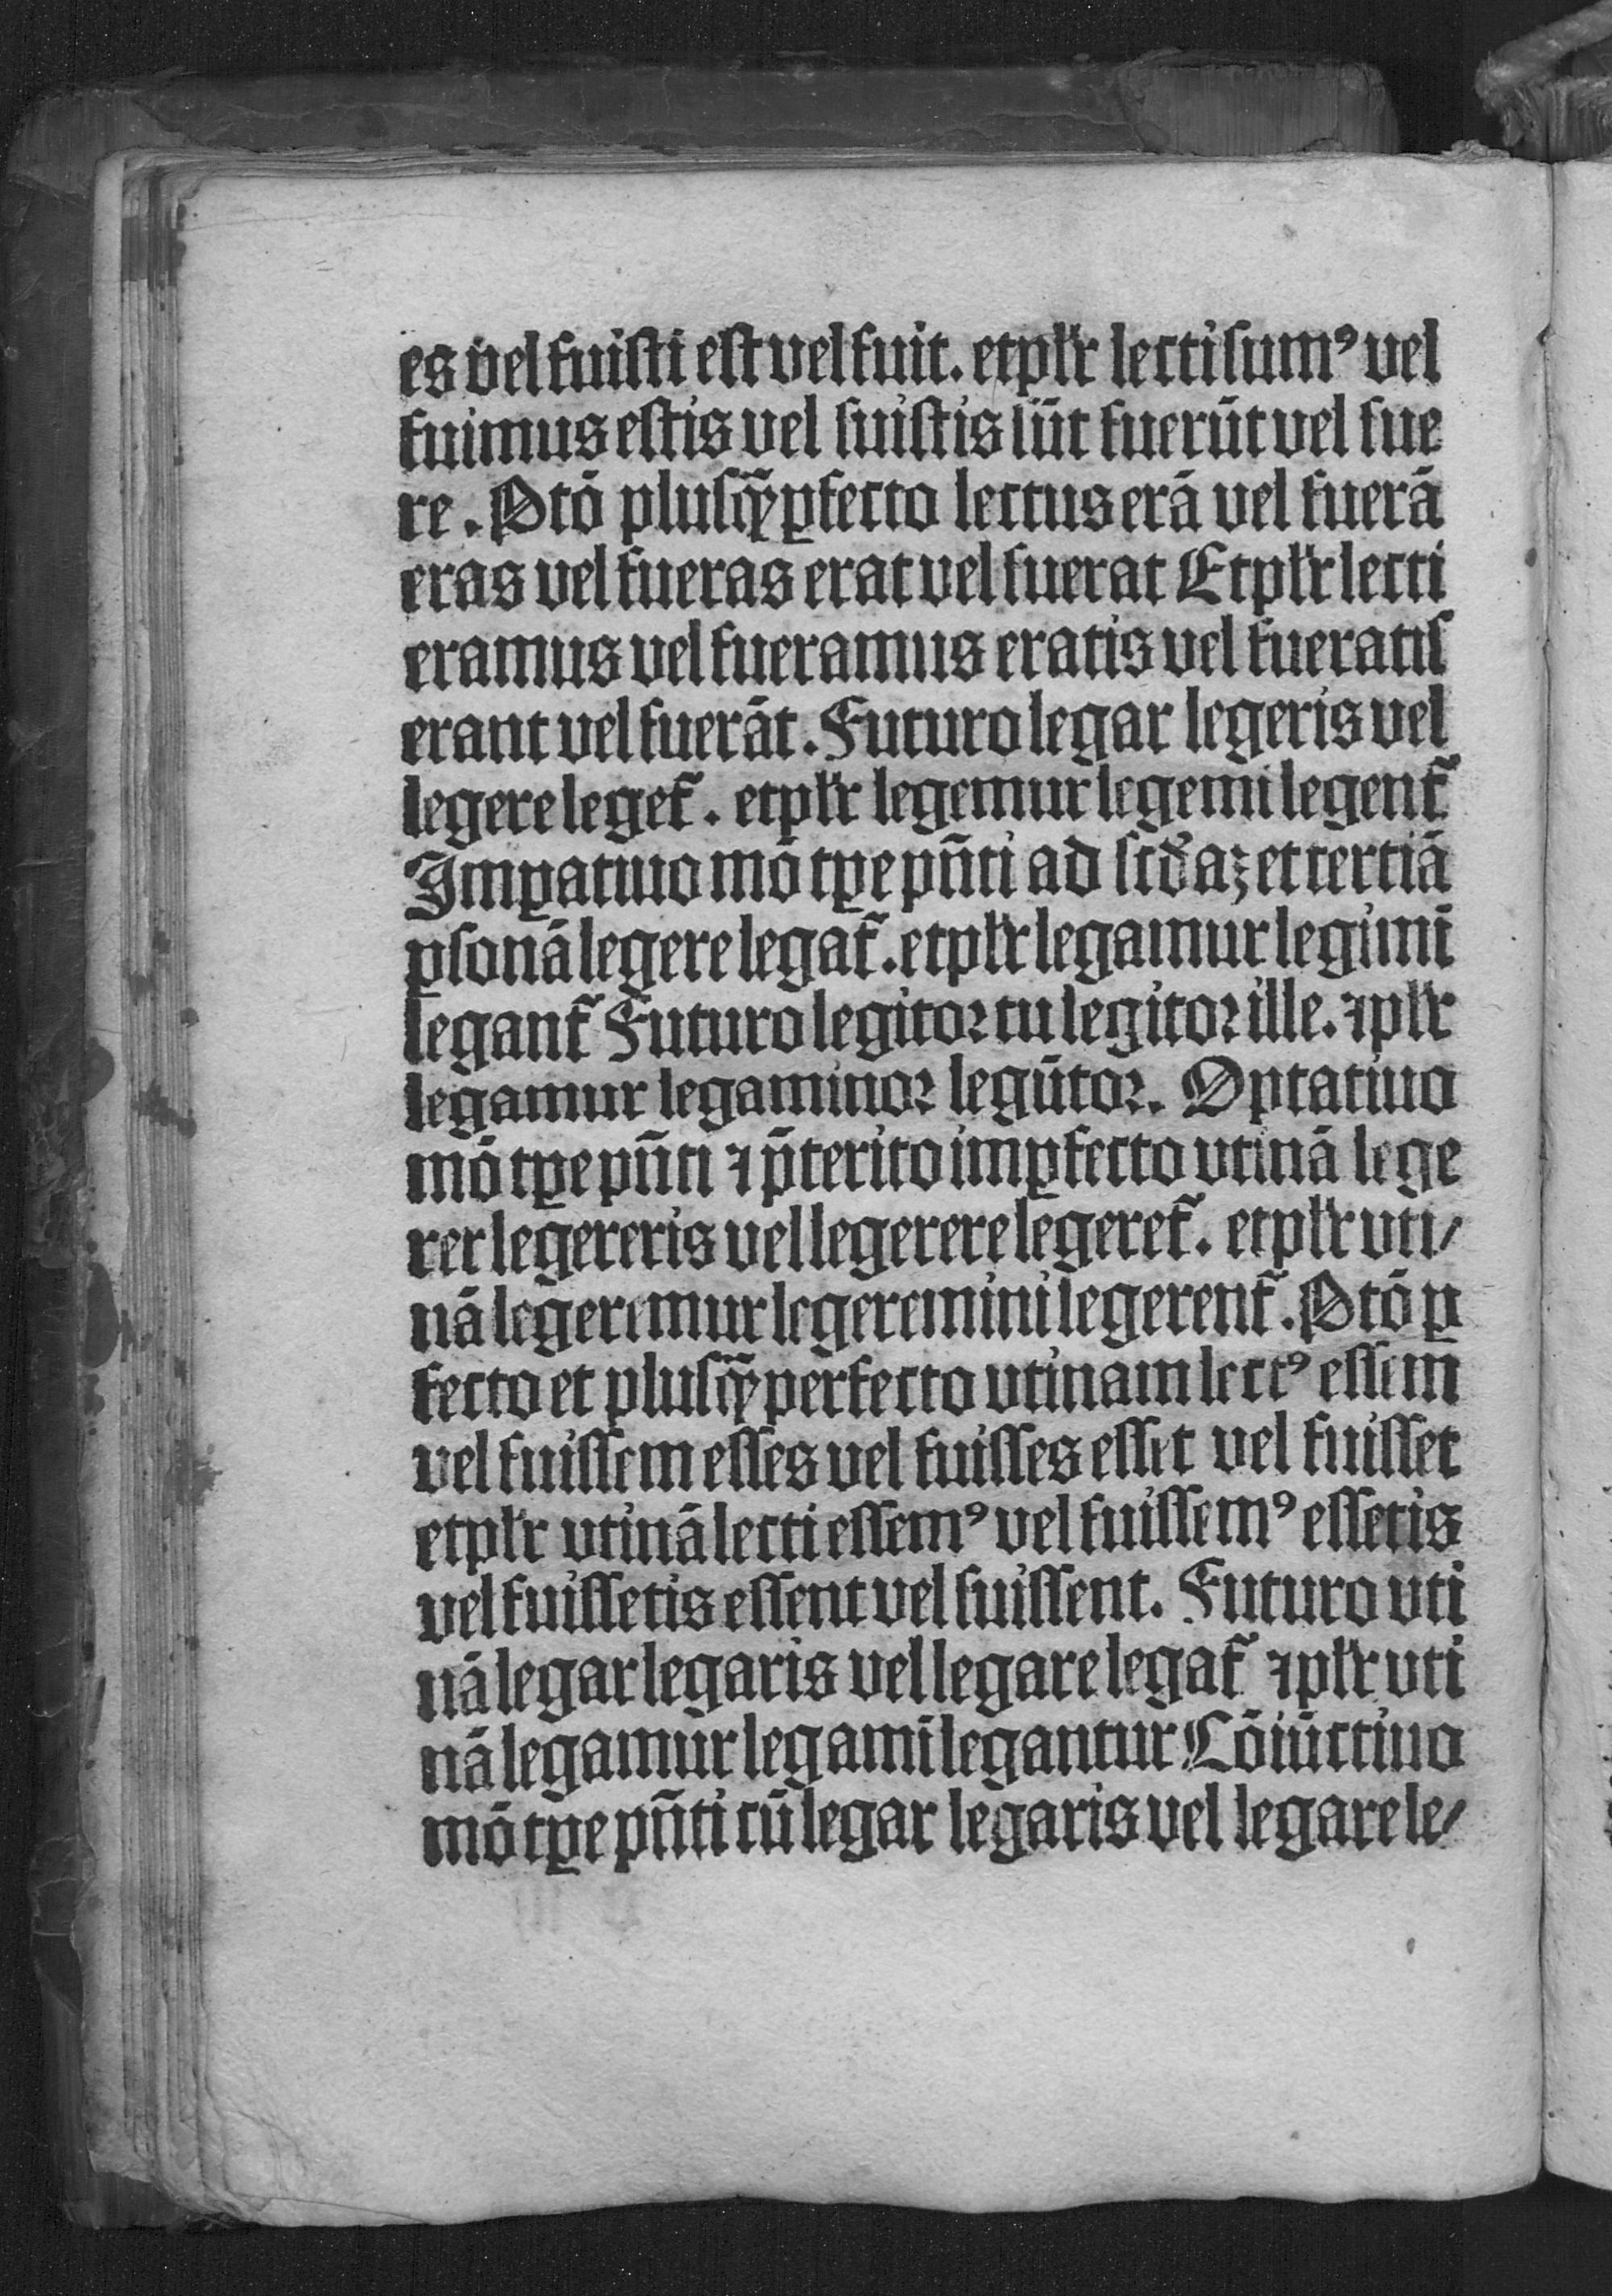 es vel fuiſti eſt vel fuit. et pl̛r lecti ſumꝰ vel
fuimus eſtis vel fuiſtis ſūt fuerūt vel fue
re. Ptō pluſqͣ̄ꝑfecto lectus erā vel fuerā
eras vel fueras erat vel fuerat Et pl̛r lecti
eramus vel fueramus eratis vel fueratiſ
erant vel fuerāt. Futuro legar legeris vel
legere leget᷑. et pl̛r legemur legemī legent᷑
Imꝑatiuo mō tꝑe pn̄ti ad ſcd̛aꝫ et tertiā
ꝑſonā legere legat᷑. et pl̛r legamur legimī
legant᷑ Futuro legitoꝛ tu legitoꝛ ille. ⁊ pl̛r
legamur legaminoꝛ legūtoꝛ. Optatiuo
mō tꝑe pn̄ti ⁊ p̄terito imꝑfecto vtinā lege
rer legereris vel legerere legeret᷑. et pl̛r vti/
nā legeremur legeremini legerent᷑. Ptō ꝑ
fecto et pluſqͣ̄perfecto vtinam lectꝰ eſſem
vel fuiſſem eſſes vel fuiſſes eſſet vel fuiſſet
et pl̛r vtinā lecti eſſemꝰ vel fuiſſemꝰ eſſetis
vel fuiſſetis eſſent vel fuiſſent. Futuro vti
nā legar legaris vel legare legat᷑ ⁊ pl̛r vti
nā legamur legamī legantur Cōiūctiuo
mō tꝑe pn̄ti cū legar legaris vel legare le/